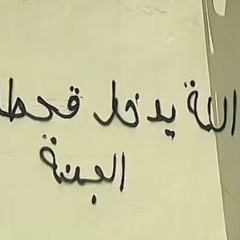 اللة يدخل قحطا
الجنة